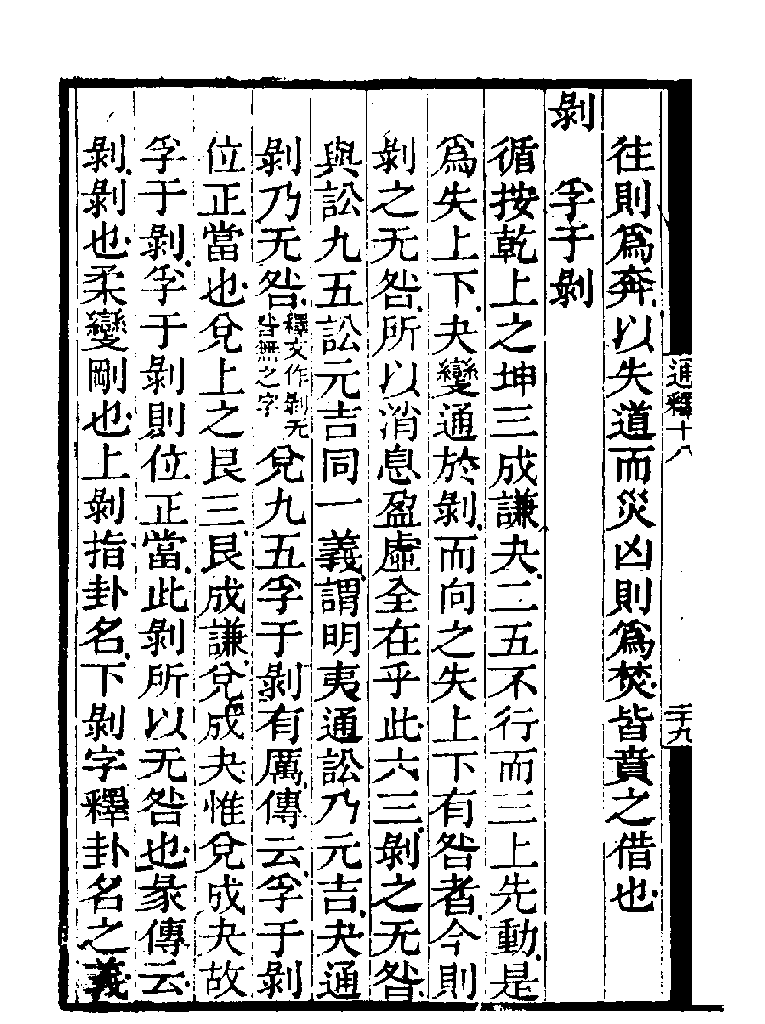 往則爲奔以失道而災凶則爲焚皆賁之借也
剝　孚于剝
循按乾上之坤三成謙夬二五不行而三上先動是
爲失上下夬變通於剝而向之失上下有咎者今則
剝之无咎所以消息盈虛全在乎此六三剝之无咎
與訟九五訟元吉同一義謂明夷通訟乃元吉夬通
剝乃无咎釋文作剝无咎無之字兌九五孚于剝有厲傳云孚于剝
位正當也兌上之艮三艮成謙兌成夬惟兌成夬故
孚于剝孚于剝則位正當此剝所以无咎也彖傳云
剝剝也柔變剛也上剝指卦名下剝字釋卦名之義
通釋十八
二十九